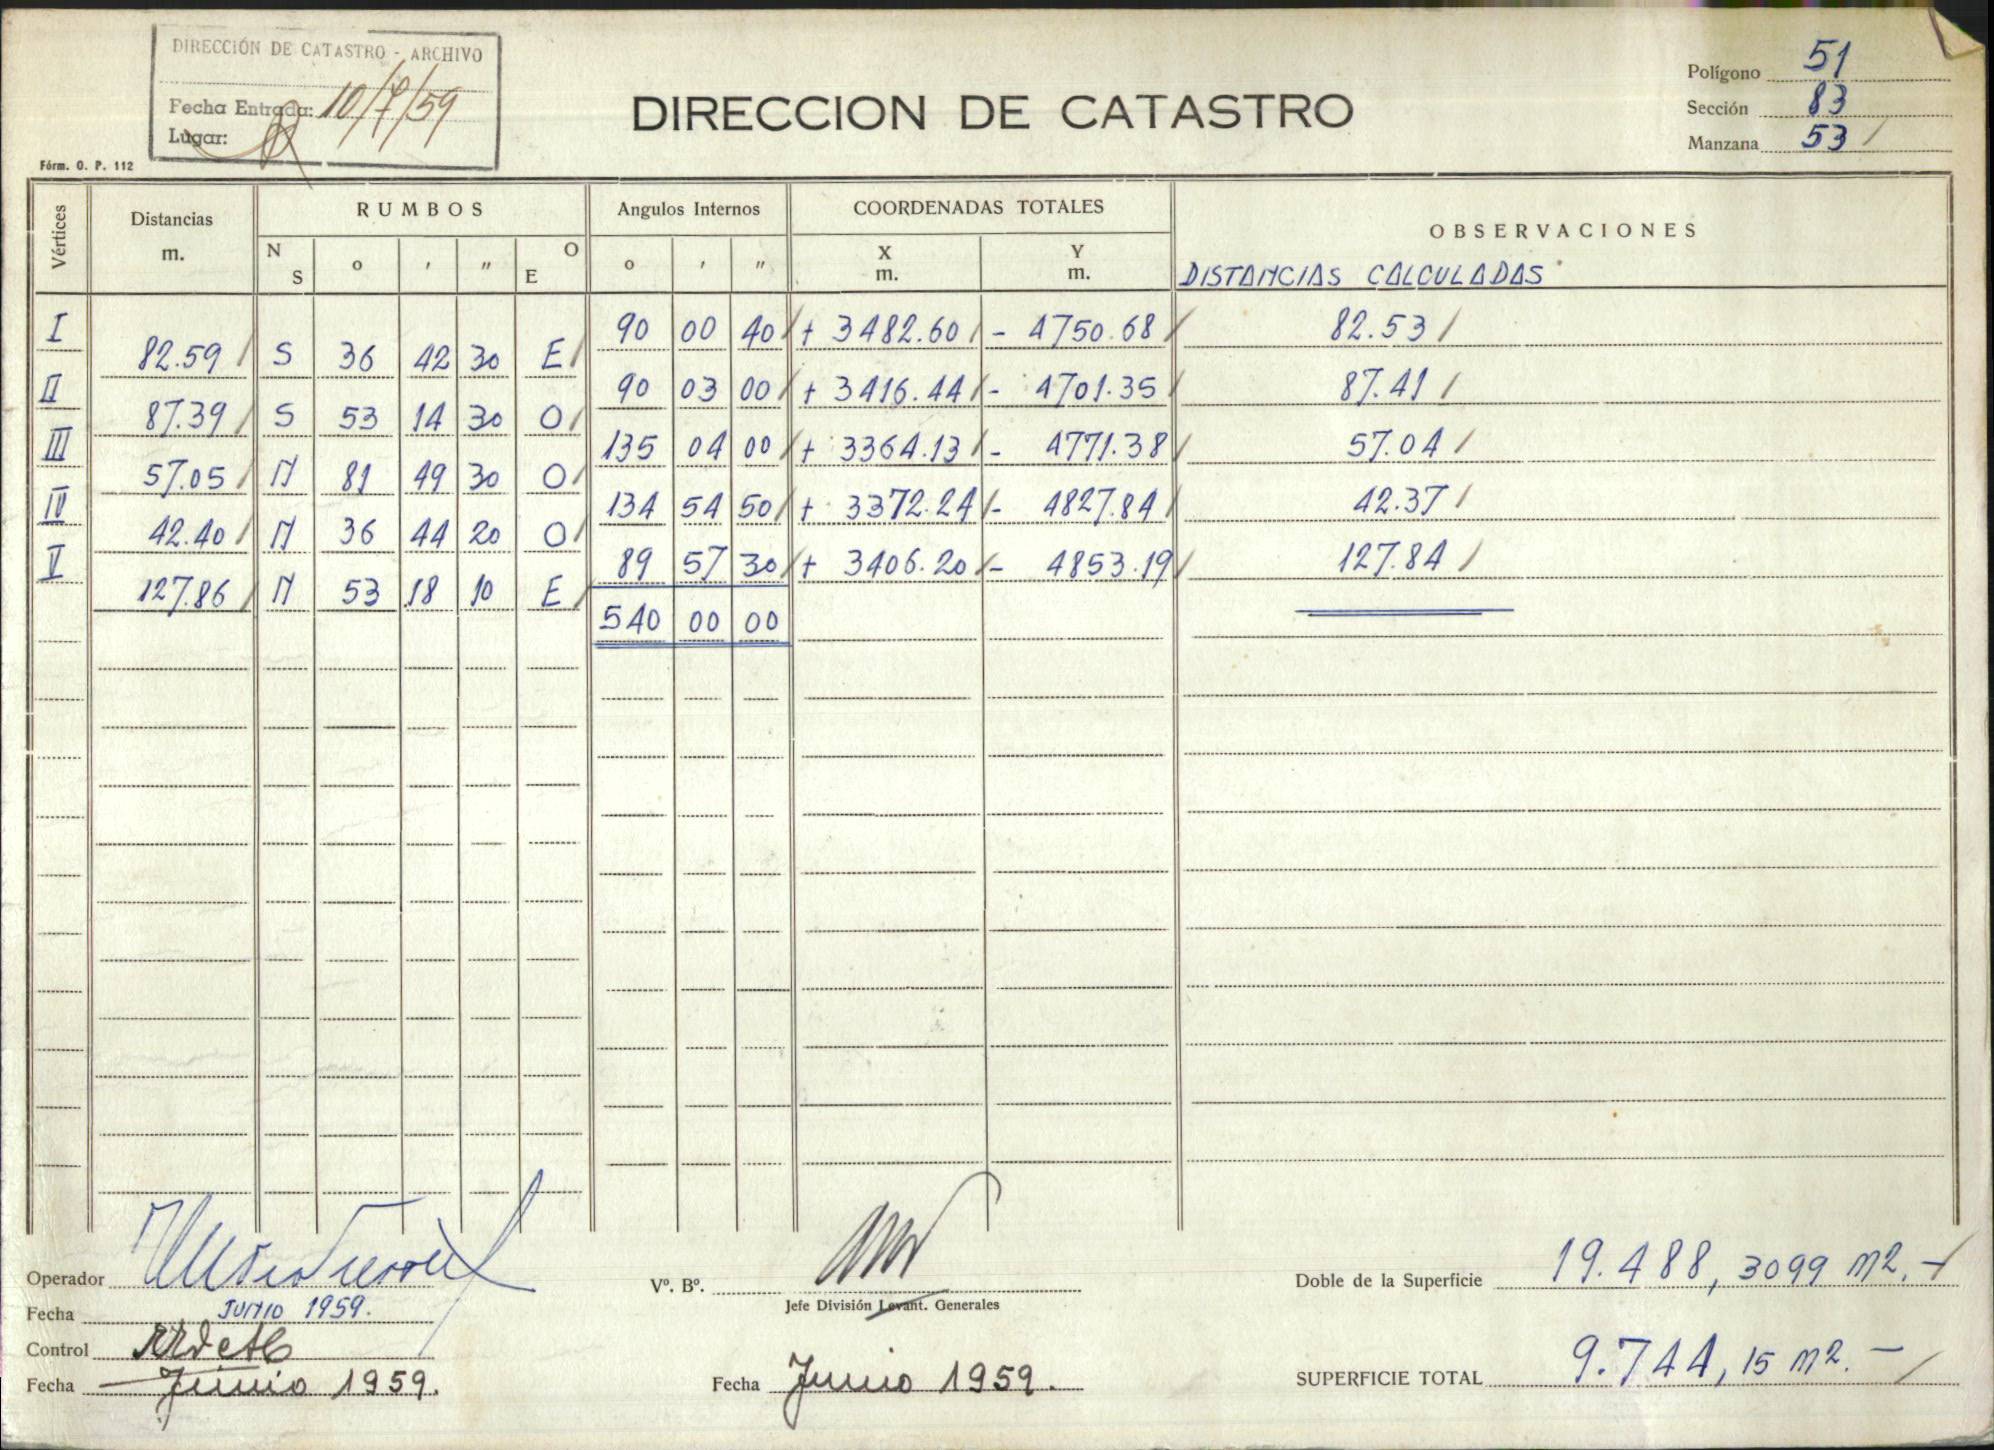 DIRECCIÓN DE CATASTRO - ARCHIVO
Fecha Entrada: 10/7/59
Lugar:
Fórm. O. P. 112
DIRECCION DE CATASTRO
Polígono 51
Sección 83
Manzana 53 /
Vértices Distancias m. RUMBOS N S o ' " O E Angulos Internos o ' " COORDENADAS TOTALES X m. Y m. OBSERVACIONES
DISTANCIAS CALCULADAS
I 90 00 40 / + 3482.60 / - 4750.68 / 82.53 /
82.59 / S 36 42 30 E /
II 90 03 00 / + 3416.44 / - 4701.35 / 87.41 /
87.39 / S 53 14 30 O /
III 135 04 00 / + 3364.13 / - 4771.38 / 57.04 /
57.05 / N 81 49 30 O /
IV 134 54 50 / + 3372.24 / - 4827.84 / 42.37 /
42.40 / N 36 44 20 O /
V 89 57 30 / + 3406.20 / - 4853.19 / 127.84 /
127.86 / N 53 18 10 E /
540 00 00
Operador
Fecha JUNIO 1959.
Control
Fecha Junio 1959.
Vº. Bº.
Jefe División Levant. Generales
Fecha Junio 1959.
Doble de la Superficie 19.488,3099 m2.-/
SUPERFICIE TOTAL 9.744,15 m2.- /